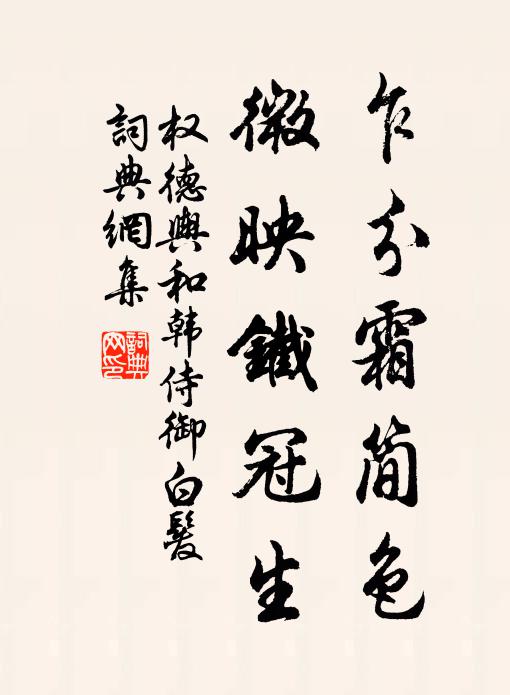 乍分霜簡色
微映鐵冠生
权德輿和韩侍御白髮
詞典網集
詞典
网印